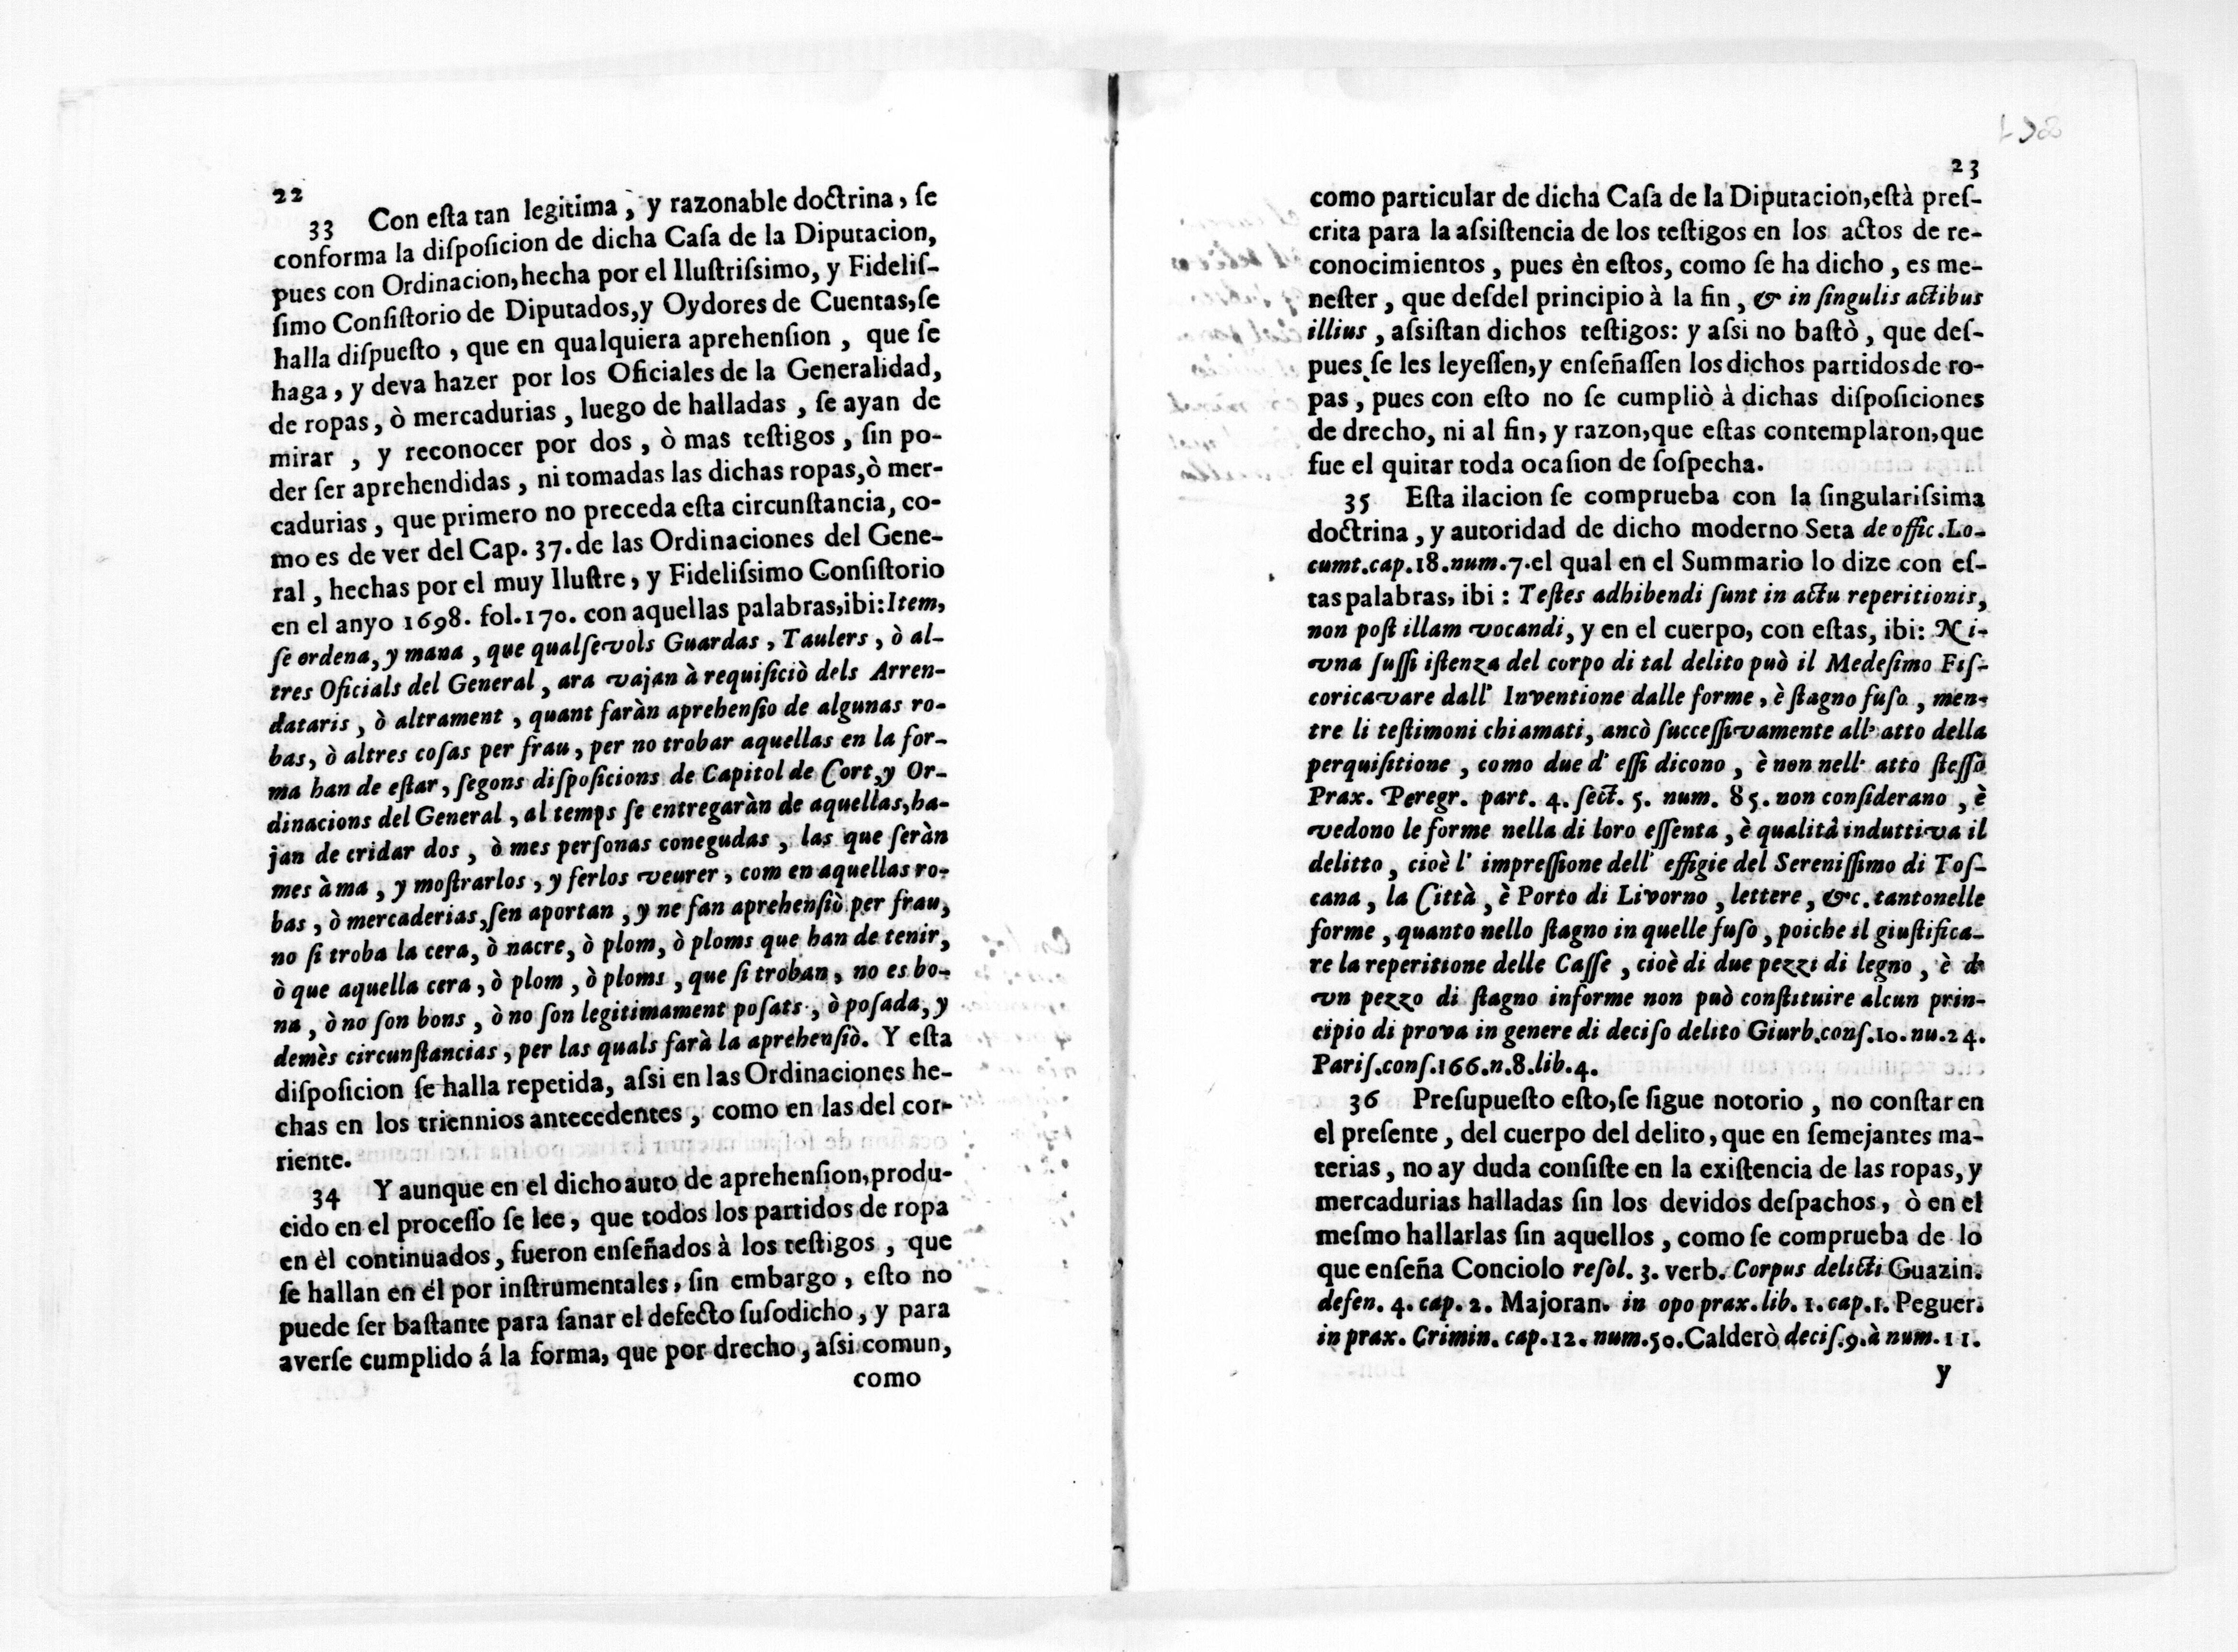 22
33 Con eſta tan legitima, y razonable doctrina, ſe
conforma la diſpoſicion de dicha Caſa de la Diputacion,
pues con Ordinacion, hecha por el Iluſtriſsimo, y Fideliſ-
ſimo Conſiſtorio de Diputados, y Oydores de Cuentas, ſe
halla diſpueſto, que en qualquiera aprehenſion, que ſe
haga, y deva hazer por los Oficiales de la Generalidad,
de ropas, ò mercadurias, luego de halladas, ſe ayan de
mirar, y reconocer por dos, ò mas teſtigos, ſin po-
der ſer aprehendidas, ni tomadas las dichas ropas, ò mer-
cadurias, que primero no preceda eſta circunſtancia, co-
mo es de ver del Cap. 37. de las Ordinaciones del Gene-
ral, hechas por el muy Iluſtre, y Fideliſsimo Conſiſtorio
en el anyo 1698. fol. 170. con aquellas palabras, ibi: Item,
ſe ordena, y mana, que qualſevols Guardas, Taulers, ò al-
tres Oficials del General, ara vajan à requiſiciò dels Arren-
dataris, ò altrament, quant faràn aprehenſio de algunas ro-
bas, ò altres coſas per frau, per no trobar aquellas en la for-
ma han de eſtar, ſegons diſpoſicions de Capitol de Cort, y Or-
dinacions del General, al temps ſe entregaràn de aquellas, ha-
jan de cridar dos, ò mes perſonas conegudas, las que ſeràn
mes à ma, y moſtrarlos, y ferlos veurer, com en aquellas ro-
bas, ò mercaderias, ſen aportan, y ne fan aprehenſiò per frau,
no ſi troba la cera, ò nacre, ò plom, ò ploms que han de tenir,
ò que aquella cera, ò plom, ò ploms, que ſi troban, no es bo-
na, ò no ſon bons, ò no ſon legitimament poſats, ò poſada, y
demès circunſtancias, per las quals farà la aprehenſiò. Y eſta
diſpoſicion ſe halla repetida, aſsi en las Ordinaciones he-
chas en los triennios antecedentes, como en las del cor-
riente.
34 Y aunque en el dicho auto de aprehenſion, produ-
cido en el proceſſo ſe lee, que todos los partidos de ropa
en èl continuados, fueron enſeñados à los teſtigos, que
ſe hallan en él por inſtrumentales, ſin embargo, eſto no
puede ſer baſtante para ſanar el defecto ſuſodicho, y para
averſe cumplido á la forma, que por drecho, aſsi comun,
como
23
como particular de dicha Caſa de la Diputacion, eſtà preſ-
crita para la aſsiſtencia de los teſtigos en los actos de re-
conocimientos, pues èn eſtos, como ſe ha dicho, es me-
neſter, que deſdel principio à la fin, & in ſingulis actibus
illius, aſsiſtan dichos teſtigos: y aſsi no baſtò, que deſ-
pues ſe les leyeſſen, y enſeñaſſen los dichos partidos de ro-
pas, pues con eſto no ſe cumpliò à dichas diſpoſiciones
de drecho, ni al fin, y razon, que eſtas contemplaron, que
fue el quitar toda ocaſion de ſoſpecha.
35 Eſta ilacion ſe comprueba con la ſingulariſsima
doctrina, y autoridad de dicho moderno Seta de offic. Lo-
cumt. cap. 18. num. 7. el qual en el Summario lo dize con eſ-
tas palabras, ibi: Teſtes adhibendi ſunt in actu reperitionis,
non poſt illam vocandi, y en el cuerpo, con eſtas, ibi: Ni-
vna ſuſſi iſtenza del corpo di tal delito può il Medeſimo Fiſ-
coricavare dall' Inventione dalle forme, è ſtagno fuſo, men-
tre li teſtimoni chiamati, ancò ſucceſſivamente all' atto della
perquiſitione, como due d' eſſi dicono, è non nell' atto ſteſſo
Prax. Peregr. part. 4. ſect. 5. num. 85. non conſiderano, è
vedono le forme nella di loro eſſenta, è qualità induttiva il
delitto, cioè l' impreſſione dell' effigie del Sereniſſimo di Toſ-
cana, la Città, è Porto di Livorno, lettere, &c. tantonelle
forme, quanto nello ſtagno in quelle fuſo, poiche il giuſtifica-
re la reperitione delle Caſſe, cioè di due pezzi di legno, è di
vn pezzo di ſtagno informe non può conſtituire alcun prin-
cipio di prova in genere di deciſo delito Giurb. conſ. 10. nu. 24.
Pariſ. conſ. 166. n. 8. lib. 4.
36 Preſupueſto eſto, ſe ſigue notorio, no conſtar en
el preſente, del cuerpo del delito, que en ſemejantes ma-
terias, no ay duda conſiſte en la exiſtencia de las ropas, y
mercadurias halladas ſin los devidos deſpachos, ò en el
meſmo hallarlas ſin aquellos, como ſe comprueba de lo
que enſeña Conciolo reſol. 3. verb. Corpus delicti Guazin.
defen. 4. cap. 2. Majoran. in opo prax. lib. 1. cap. 1. Peguer.
in prax. Crimin. cap. 12. num. 50. Calderò deciſ. 9. à num. 11.
y